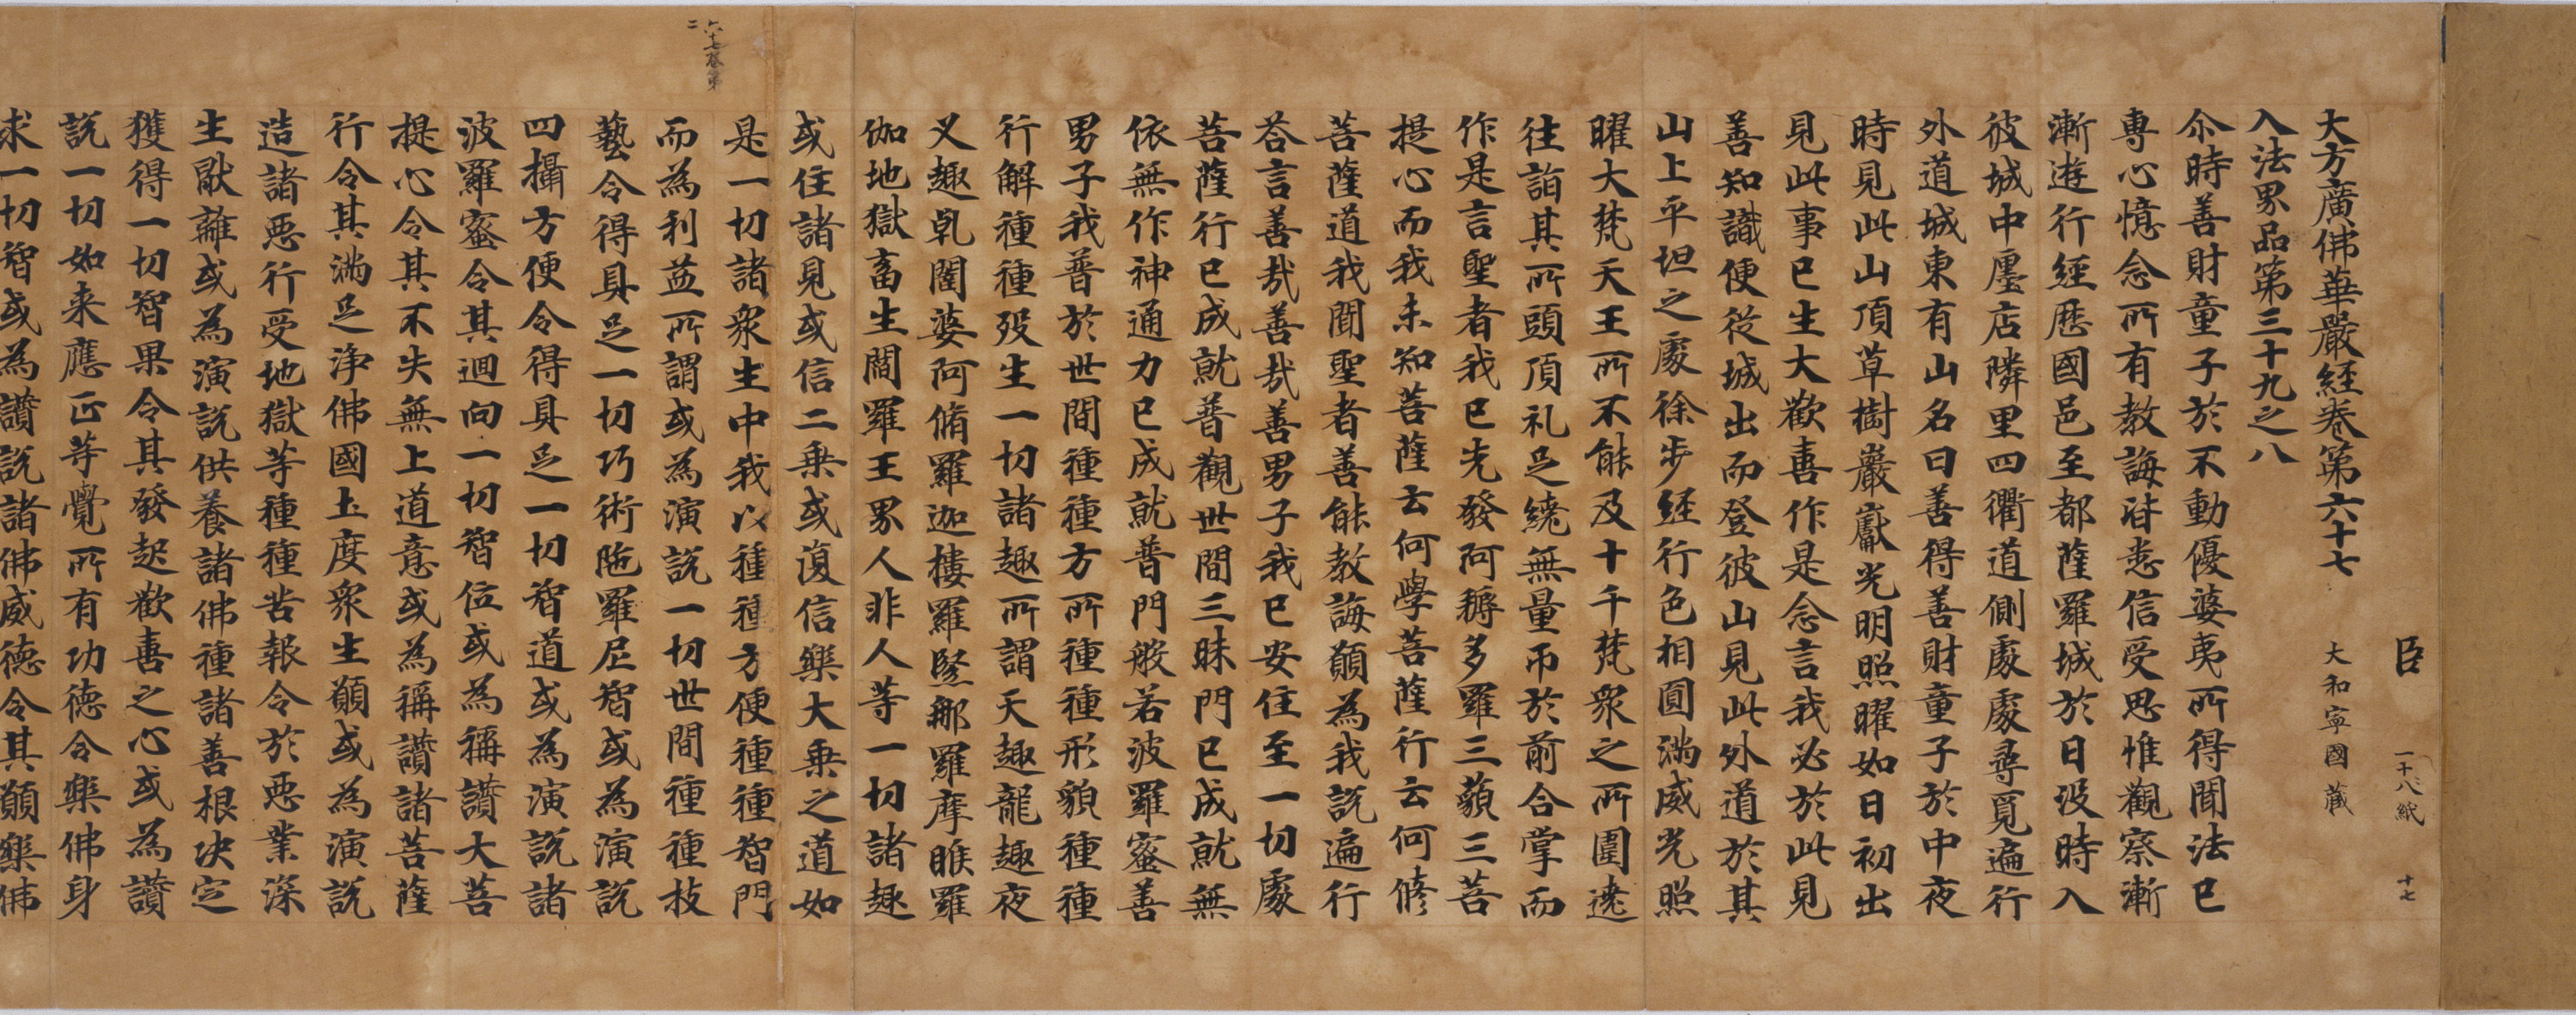 臣
一千八紙
十七
大方廣佛華嚴経巻第六十七
大和寧國藏
入法界品第三十九之八
尒時善財童子於不動優婆夷所得聞法已
專心憶念所有教誨皆悉信受思惟觀察漸
漸遊行経歷國邑至都薩羅城於日没時入
彼城中廛店隣里四衢道側處處尋覓遍行
外道城東有山名曰善得善財童子於中夜
時見此山頂草樹巖巘光明照曜如日初出
見此事已生大歡喜作是念言我必於此見
善知識便從城出而登彼山見此外道於其
山上平坦之處徐步経行色相圓滿威光照
曜大梵天王所不能及十千梵衆之所圍遶
往詣其所頭頂礼足繞無量帀於前合掌而
作是言聖者我已先發阿耨多羅三藐三菩
提心而我未知菩薩云何學菩薩行云何脩
菩薩道我聞聖者善能教誨願為我說遍行
荅言善㢤善㢤善男子我已安住至一切處
菩薩行已成就普觀世間三昧門已成就無
依無作神通力已成就普門般若波羅蜜善
男子我普於世間種種方所種種形貌種種
行解種種歿生一切諸趣所謂天趣龍趣夜
叉趣乹闥婆阿脩羅迦樓羅緊那羅摩睺羅
伽地獄畜生閻羅王界人非人等一切諸趣
或住諸見或信二乗或復信樂大乗之道如
是一切諸衆生中我以種種方便種種智門
而為利益所謂或為演說一切世間種種技
藝令得具足一切巧術陁羅尼智或為演說
四攝方便令得具足一切智道或為演說諸
波羅蜜令其迴向一切智位或為稱讚大菩
提心令其不失無上道意或為稱讚諸菩薩
行令其滿足淨佛國土度衆生願或為演說
造諸惡行受地獄等種種苦報令於惡業深
生猒離或為演說供養諸佛種諸善根决定
獲得一切智果令其發起歡喜之心或為讚
說一切如来應正等覺所有功德令樂佛身
求一切智或為讚說諸佛威德令其願樂佛
六十七巻第
二